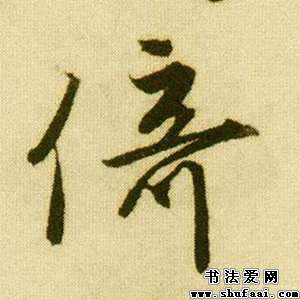 侪
书法爱网
www.shufaai.com